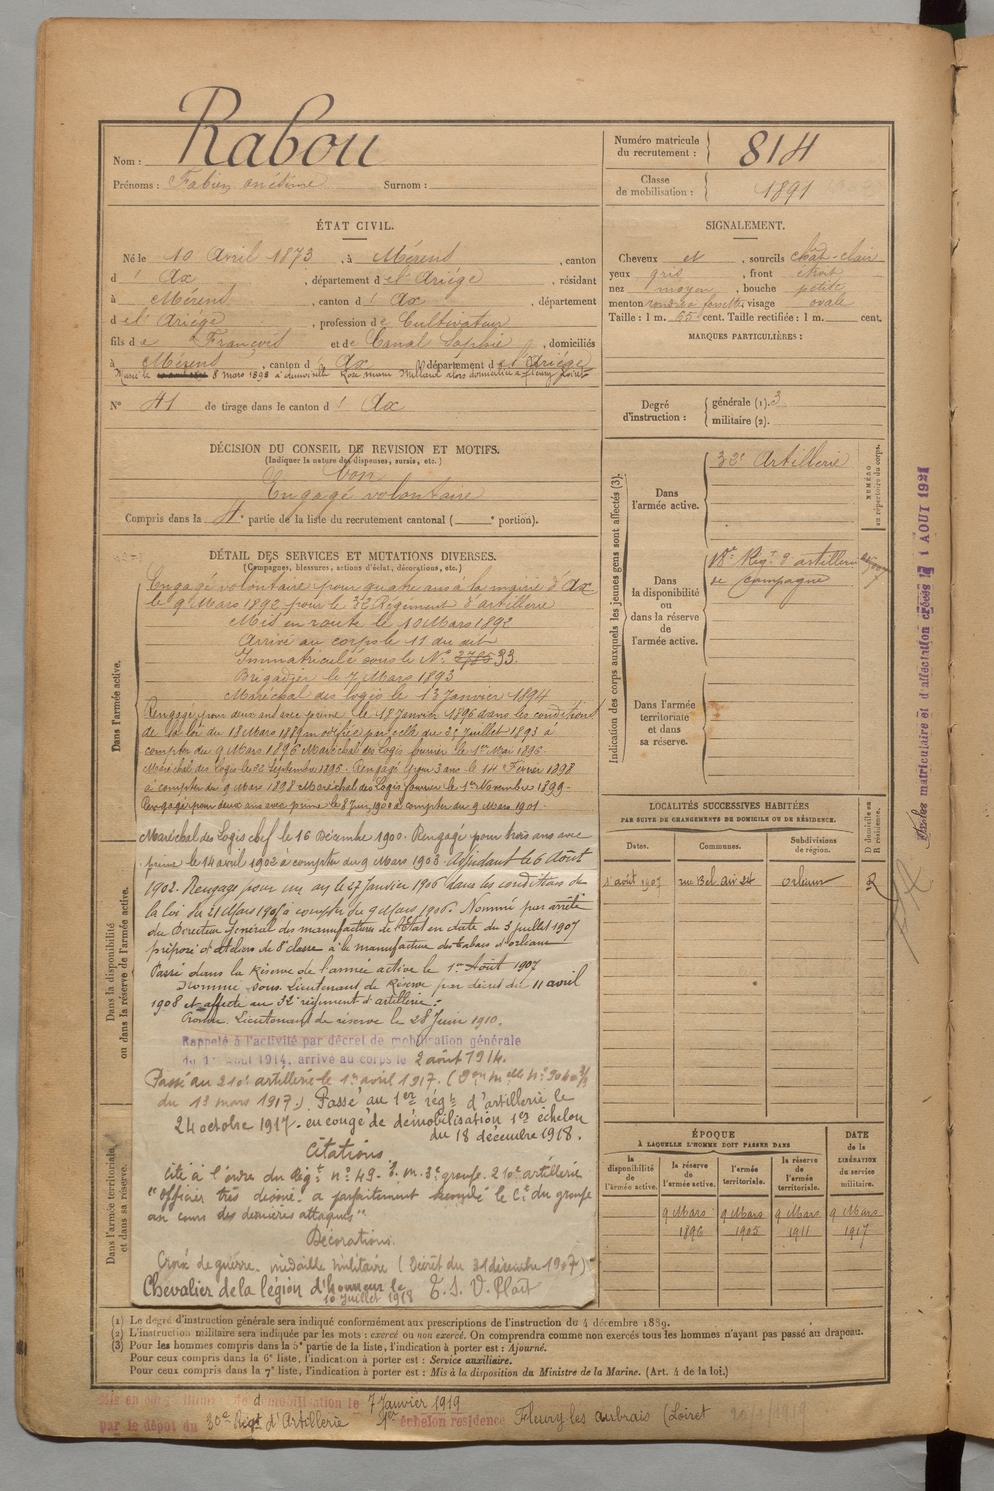 Nom : Rabou
Prénoms : Fabien onézime Surnom :
Numéro matricule du recrutement : 814
Classe de mobilisation : 1891
ÉTAT CIVIL.
Né le 10 Avril 1873, à Mérens, canton
d' Ax, département de l'Ariége, résidant
à Mérens, canton d' Ax, département
de l'Ariége, profession de Cultivateur
fils de François et de Canal Sophie, domiciliés
à Mérens, canton d' Ax, département de l'Ariége
Marié le 8 mars 1898 à Rose Marie alors domicilié à fleury Loiret
N° 41 de tirage dans le canton d' Ax
SIGNALEMENT.
Cheveux et, sourcils chât-clair
yeux gris, front étroit
nez moyen, bouche petite
menton rond à fossette, visage ovale
Taille : 1 m. 65 cent. Taille rectifiée : 1 m. cent.
MARQUES PARTICULIÈRES :
Degré d'instruction : générale (1). 3
militaire (2).
DÉCISION DU CONSEIL DE REVISION ET MOTIFS.
(Indiquer la nature des dispenses, sursis, etc.)
Bon
Engagé volontaire
Compris dans la 4e partie de la liste du recrutement cantonal ( e portion).
DÉTAIL DES SERVICES ET MUTATIONS DIVERSES.
(Campagnes, blessures, actions d'éclat, décorations, etc.)
Dans l'armée active.
Engagé volontaire pour quatre ans à la mairie d'Ax
le 9 Mars 1892 pour le 32e Régiment d'artillerie
Mis en route le 10 Mars 1892
Arrivé au corps le 11 du dit
Immatriculé sous le N° 33.
Brigadier le 7 Mars 1893
Maréchal des logis le 13 Janvier 1894
Rengagé pour deux ans avec prime le 18 Janvier 1896 dans les conditions
de la loi du 18 Mars 1889 modifiée par celle du Juillet 1893 à
compter du 9 Mars 1896 Maréchal des Logis fourrier le 1er Mai 1896.
Maréchal des Logis le 22 Septembre 1896. Rengagé pour 3 ans le 14 Février 1898
à compter du 9 Mars 1898 Maréchal des Logis fourrier le 1er Novembre 1899.
Rengagé pour deux ans avec prime le 8 Juin 1900 à compter du 9 Mars 1901.
Maréchal des Logis chef le 16 Décembre 1900. Rengagé pour trois ans avec
prime le 14 avril 1902 à compter du 9 Mars 1903. Adjudant le 6 Août
1902. Rengagé pour un an le 27 Janvier 1906 dans les conditions de
la loi du 21 Mars 1905 à compter du 9 Mars 1906. Nommé par arrêté
du Directeur Général des manufactures de l'Etat en date du 3 juillet 1907
préposé d'ateliers de 8e classe à la manufacture des tabacs d'Orléans
Passé dans la Réserve de l'armée active le 1er Août 1907
Nommé sous-Lieutenant de Réserve par décret du 11 avril
1908 et affecté au 32e régiment d'artillerie.
Promu Lieutenant de réserve le 28 Juin 1910.
Rappelé à l'activité par décret de mobilisation générale
du 1er août 1914, arrivé au corps le 2 août 1914.
Passé au 210e artillerie le 1er avril 1917.
du 13 mars 1917.) Passé au 1er régt d'artillerie le
24 octobre 1917. en congé de démobilisation 1er échelon
du 18 décembre 1918.
Citations
Cité à l'ordre du Régt n° 49. 3e groupe. 210e artillerie
"officier très dévoué. a parfaitement secondé le Ct du groupe
au cours des dernières attaques".
Décorations.
Croix de guerre. médaille militaire (Décret du 31 décembre 1907)
Chevalier de la légion d'honneur le T. S. V. Plait
10 Juillet 1918
Dans la disponibilité ou dans la réserve de l'armée active.
Dans l'armée territoriale et dans sa réserve.
Indication des corps auxquels les jeunes gens sont affectés (3).
Dans l'armée active. 32e Artillerie
Dans la disponibilité ou dans la réserve de l'armée active. Regt d'artillerie
de campagne
Dans l'armée territoriale et dans sa réserve.
NUMÉRO au répertoire du corps.
LOCALITÉS SUCCESSIVES HABITÉES
PAR SUITE DE CHANGEMENTS DE DOMICILE OU DE RÉSIDENCE.
Dates. Communes. Subdivisions de région. D domicile ou R résidence.
août 1907 rue Bel Air 24 Orléans R
ÉPOQUE
À LAQUELLE L'HOMME DOIT PASSER DANS
la disponibilité de l'armée active. la réserve de l'armée active. l'armée territoriale. la réserve de l'armée territoriale.
DATE de la LIBÉRATION du service militaire.
9 Mars 9 Mars 9 Mars 9 Mars
1896 1905 1911 1917
(1) Le degré d'instruction générale sera indiqué conformément aux prescriptions de l'instruction du 4 décembre 1889.
(2) L'instruction militaire sera indiquée par les mots : exercé ou non exercé. On comprendra comme non exercés tous les hommes n'ayant pas passé au drapeau.
(3) Pour les hommes compris dans la 5e partie de la liste, l'indication à porter est : Ajourné.
Pour ceux compris dans la 6e liste, l'indication à porter est : Service auxiliaire.
Pour ceux compris dans la 7e liste, l'indication à porter est : Mis à la disposition du Ministre de la Marine. (Art. 4 de la loi.)
Mis en congé illimité de démobilisation le 7 Janvier 1919
par le dépôt du 30e Régt d'Artillerie 1er échelon résidence Fleury les aubrais (Loiret
matriculaire et d'affectation créées le 1 AOUT 1921